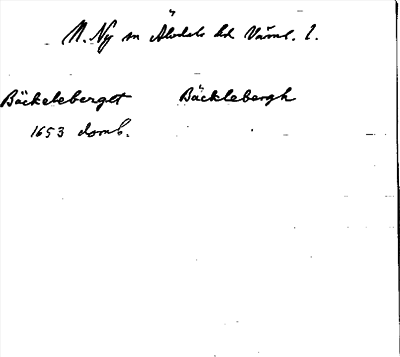 N. Ny sn Älvdals hd Värml. l.
Bäckeleberget Bäcklebergh
1653 domb.